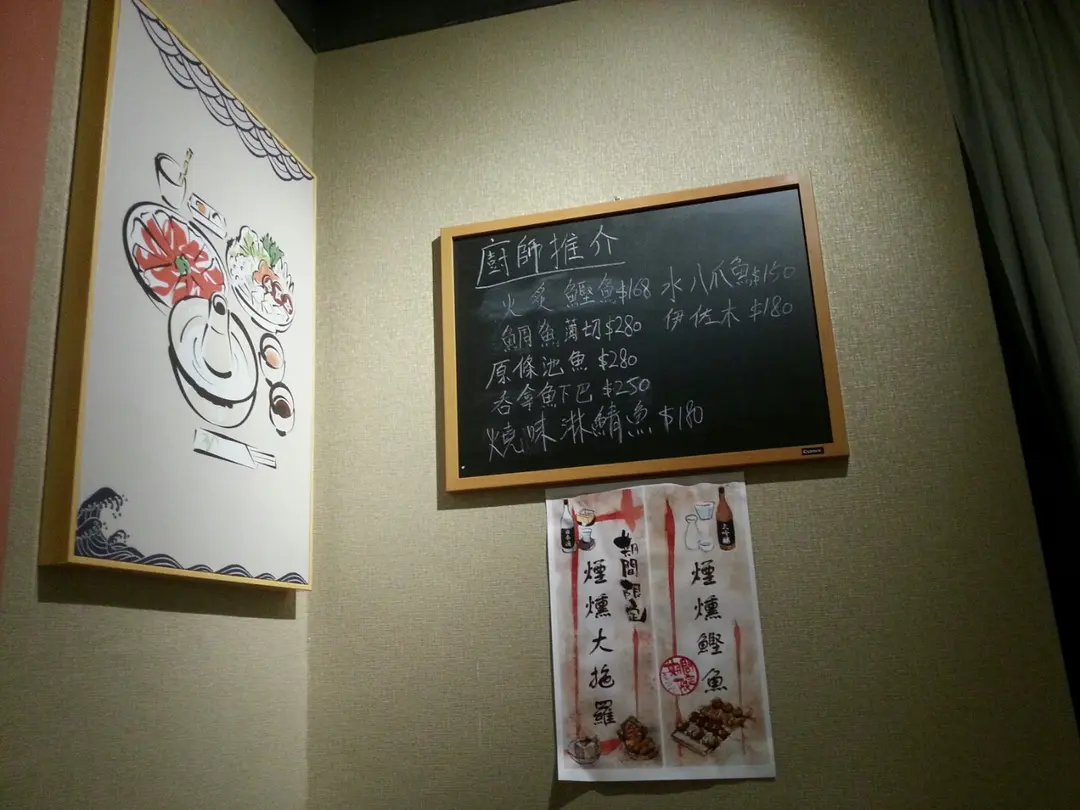 廚師推介
火炙鰹魚$168
鯛魚薄切$280
原條池魚$280
吞拿魚下巴$250
燒味淋鯖魚$180
水八爪魚$150
伊佐木$180
期間限定
煙燻大拖羅
大吟醸
煙燻鰹魚